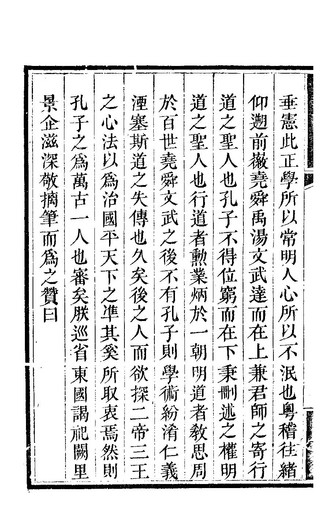 垂憲此正學所以常明人心所以不泯也粤稽往緒
仰遡前徽堯舜禹湯文武達而在上兼君師之寄行
道之聖人也孔子不得位窮而在下秉刪述之權明
道之聖人也行道者勲業炳於一朝明道者教思周
於百世堯舜文武之後不有孔子則學術紛淆仁義
湮塞斯道之失傳也久矣後之人而欲探二帝三王
之心法以為治國平天下之凖其奚所取衷焉然則
孔子之為萬古一人也審矣朕巡省東國謁祀闕里
景企滋深敬摛筆而為之贊曰